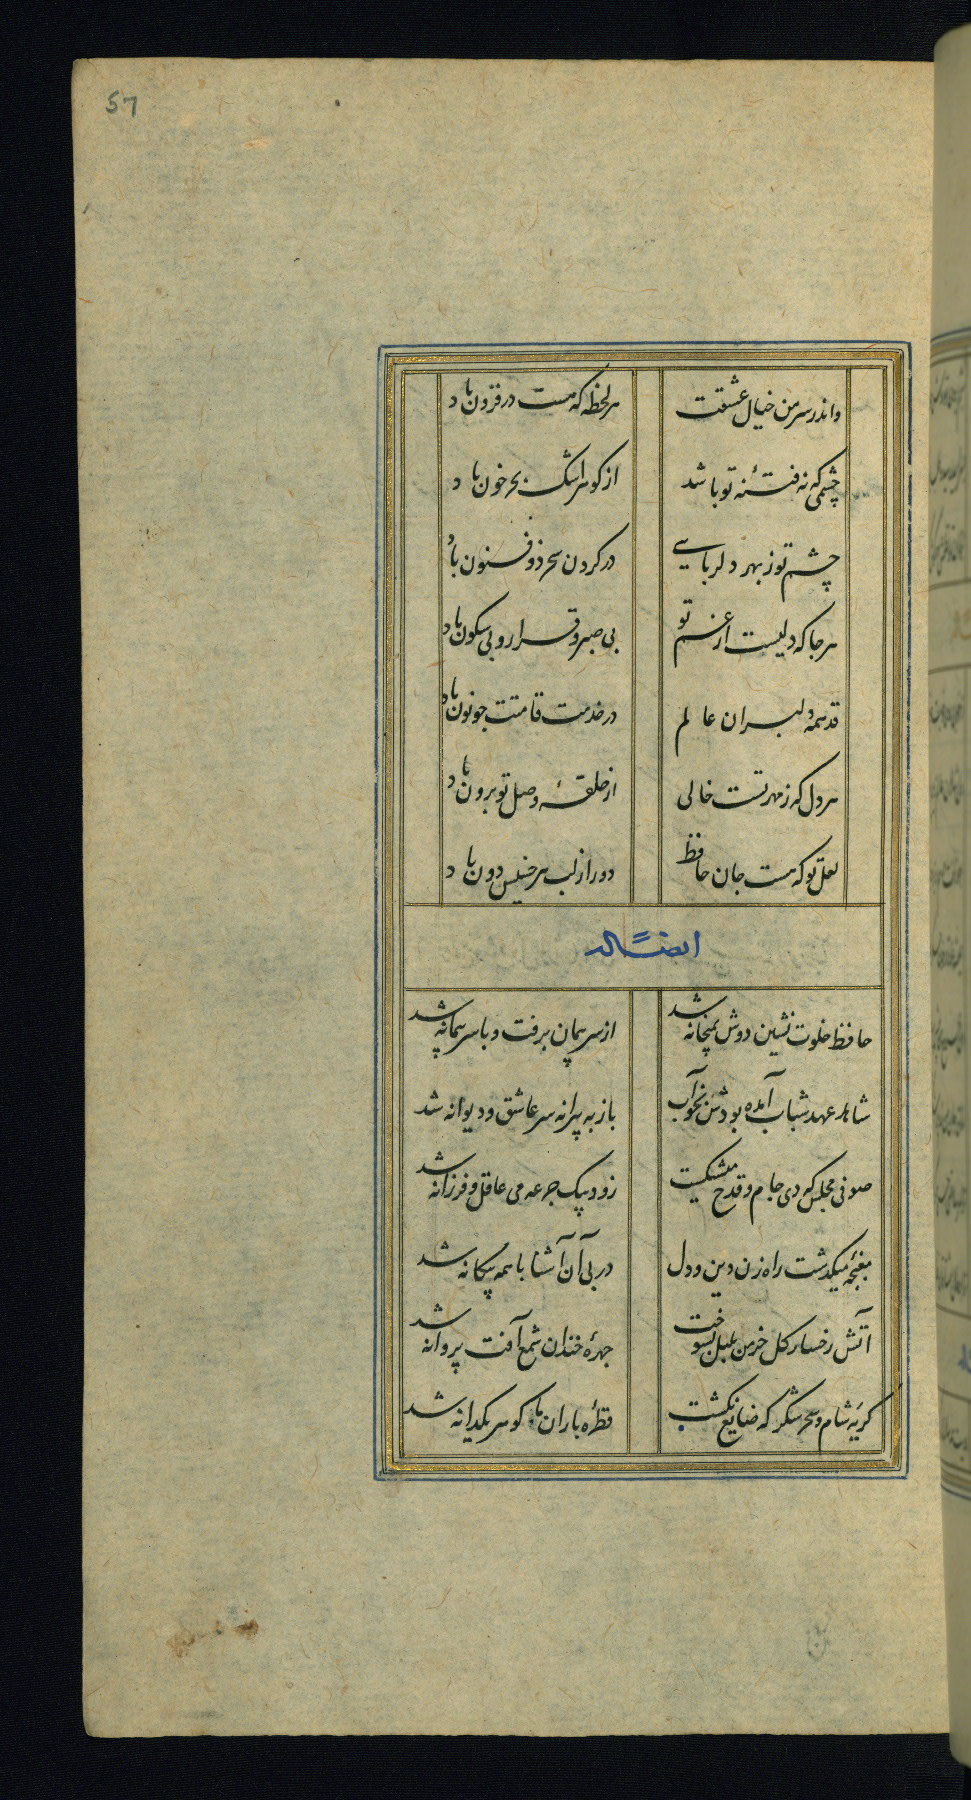 57
واندر سر من خیال عشقت
هر لحظه که هست در فزون باد
چشمی که نه فتنهٔ تو باشد
از گوهر اشک بحر خون باد
چشم تو ز بهر دلربایی
در کردن سحر ذوفنون باد
هر جا که دلیست از غم تو
بی صبر و قرار و بی سکون باد
قد همه دلبران عالم
در خدمت قامتت چو نون باد
هر دل که ز مهر تست خالی
از حلقهٔ وصل تو برون باد
لعل تو که هست جان حافظ
دور از لب هر خسیس دون باد
ایضاً له
حافظ خلوت نشین دوش بمیخانه شد
از سر پیمان برفت و با سر پیمانه شد
شاهد عهد شباب آمده بودش بخواب
باز به پیرانه سر عاشق و دیوانه شد
صوفی مجلس که دی جام و قدح میشکست
زود بیک جرعه می عاقل و فرزانه شد
مغبچهٔ میگذشت راه زن دین و دل
در پی آن آشنا با همه بیگانه شد
آتش رخسار گل خرمن بلبل بسوخت
چهرهٔ خندان شمع آفت پروانه شد
گریهٔ شام و سحر شکر که ضایع نگشت
قطرهٔ باران ما گوهر یکدانه شد